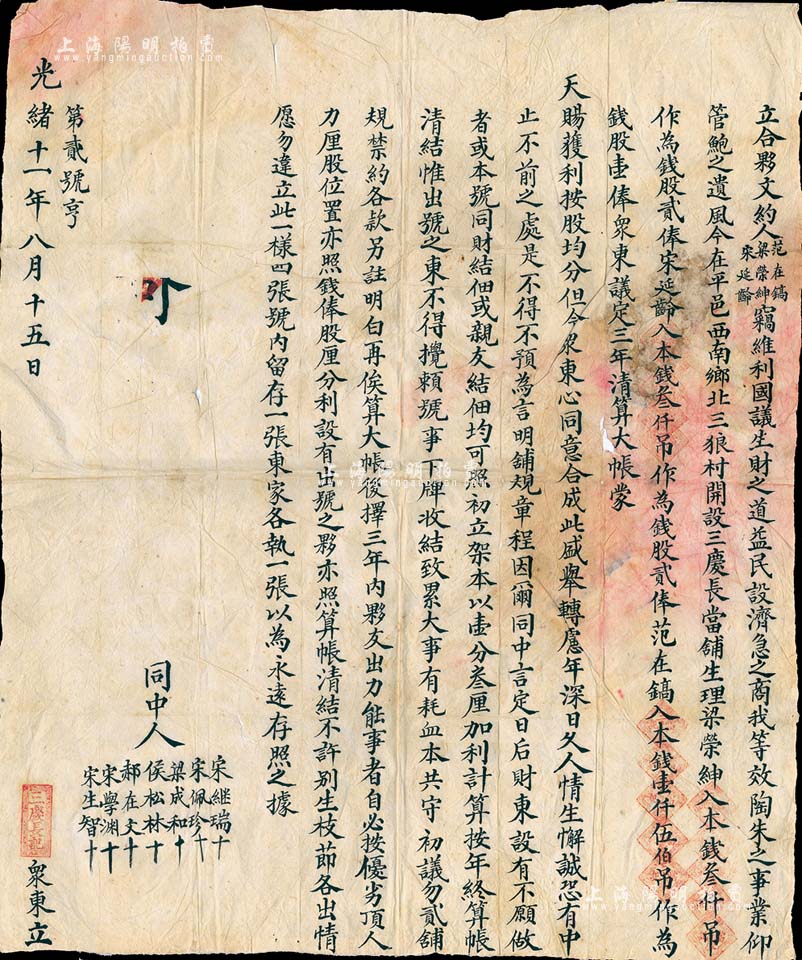 立合夥文約人范在鎬梁榮紳宋延齡竊維利國議生財之道益民設濟急之商我等效陶朱之事業仰
管鮑之遺風今在平邑西南鄉北三狼村開設三慶長當舖生理梁榮紳入本錢叁仟吊
作為錢股貳俸宋延齡入本錢叁仟吊作為錢股貳俸范在鎬入本錢壹仟伍伯吊作為
錢股壹俸眾東議定三年清算大帳蒙
天賜獲利按股均分但今眾東心同意合成此盛舉轉慮年深日久人情生懈誠恐有中
止不前之處是不得不預為言明舖規章程因爾同中言定日后財東設有不願做
者或本號同財結佃或親友結佃均可照初立架本以壹分叁厘加利計算按年終算帳
清結惟出號之東不得攪賴號事下牌收結致累大事有耗血本共守初議勿貳舖
規禁約各款另註明白再俟算大帳後擇三年內夥友出力能事者自必按優劣頂人
力厘股位置亦照錢俸股厘分利設有出號之夥亦照算帳清結不許別生枝節各出情
愿勿違立此一樣四張號內留存一張東家各執一張以為永遠存照之據
同中人
宋繼瑞十
宋佩珍十
梁成和十
侯松林十
郝在文十
宋學淵十
宋生智十
第貳號亨
光緒十一年八月十五日
三慶長記
眾東立
上海陽明拍賣
www.yangmingauction.com
上海陽明拍賣
www.yangmingauction.com
上海陽明拍賣
www.yangmingauction.com